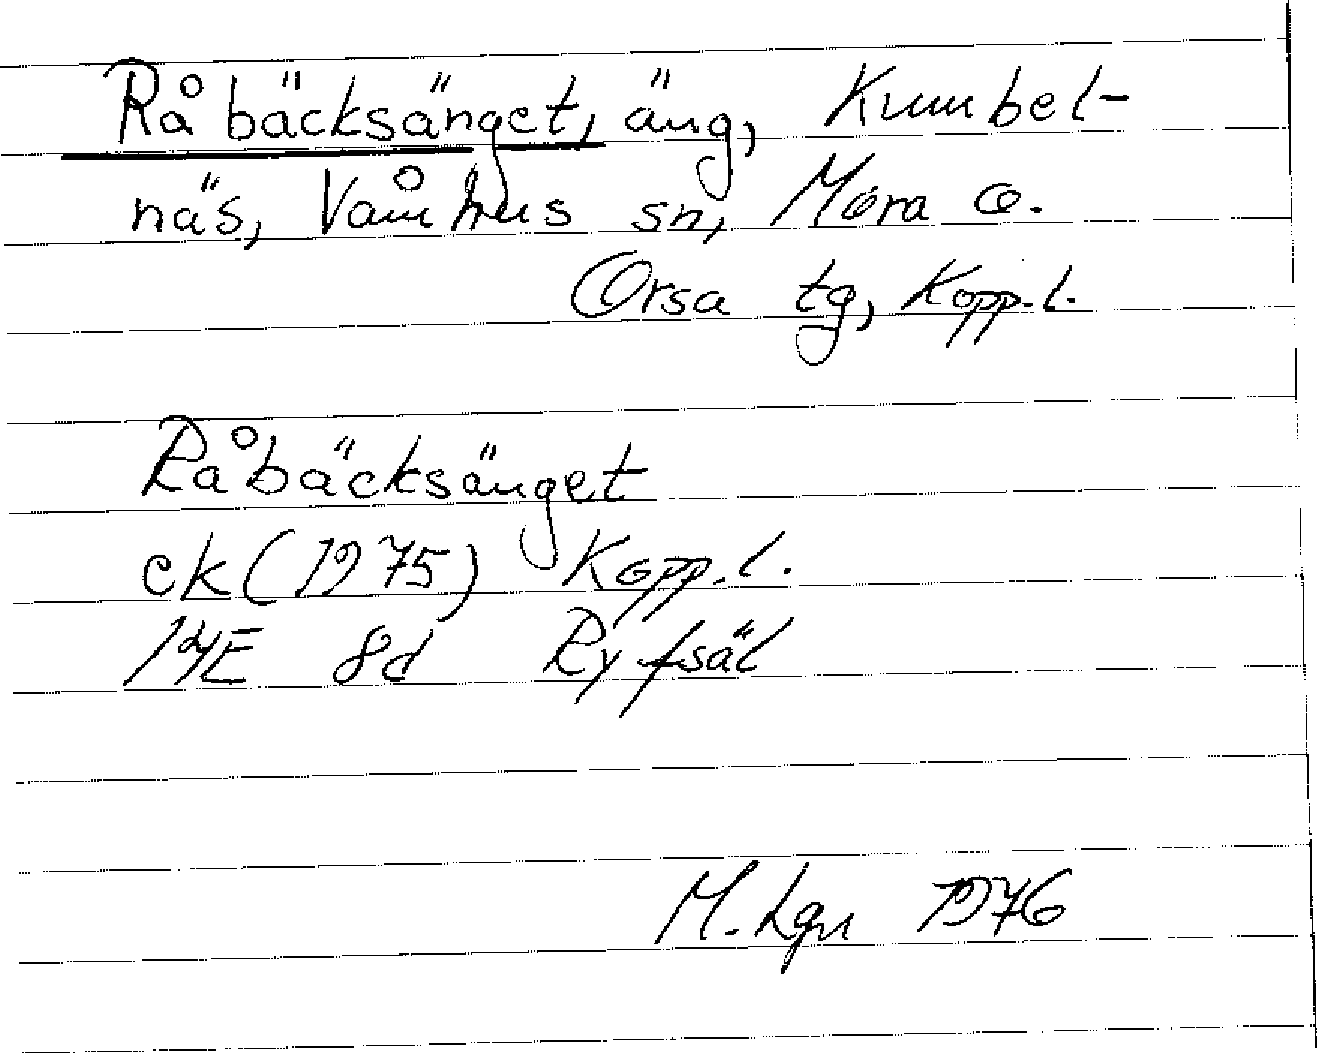 Råbäcksänget, äng, Kumbel-
näs, Våmhus sn, Mora o.
Orsa tg, Kopp.l.
Råbäcksänget
ek (1975) Kopp.l.
14E 8d Ryfsäl
M. Lgn 1976